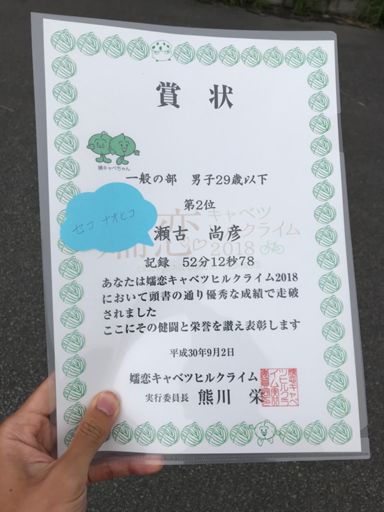 賞状
嬬キャベちゃん
一般の部 男子29歳以下
第2位
セコ ナオヒコ
瀬古 尚彦
嬬恋キャベツ
ヒルクライム
2018
記録 52分12秒78
あなたは嬬恋キャベツヒルクライム2018
において頭書の通り優秀な成績で走破
されました
ここにその健闘と栄誉を讃え表彰します
平成30年9月2日
嬬恋キャベツヒルクライム
実行委員長 熊川 栄